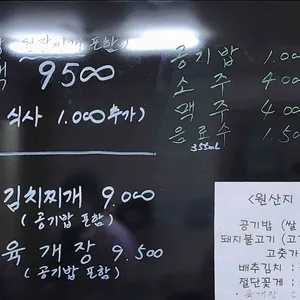 된장찌개 포함)
9500
식사 1.000 추가)
공기밥 1.00
소주 4.00
맥주 4.00
음료수 1.50
355ml
김치찌개 9.000
(공기밥 포함)
육개장 9.500
(공기밥 포함)
<원산지
공기밥 (쌀
돼지불고기 (고
고춧가
배추김치 :
절단꽃게 :